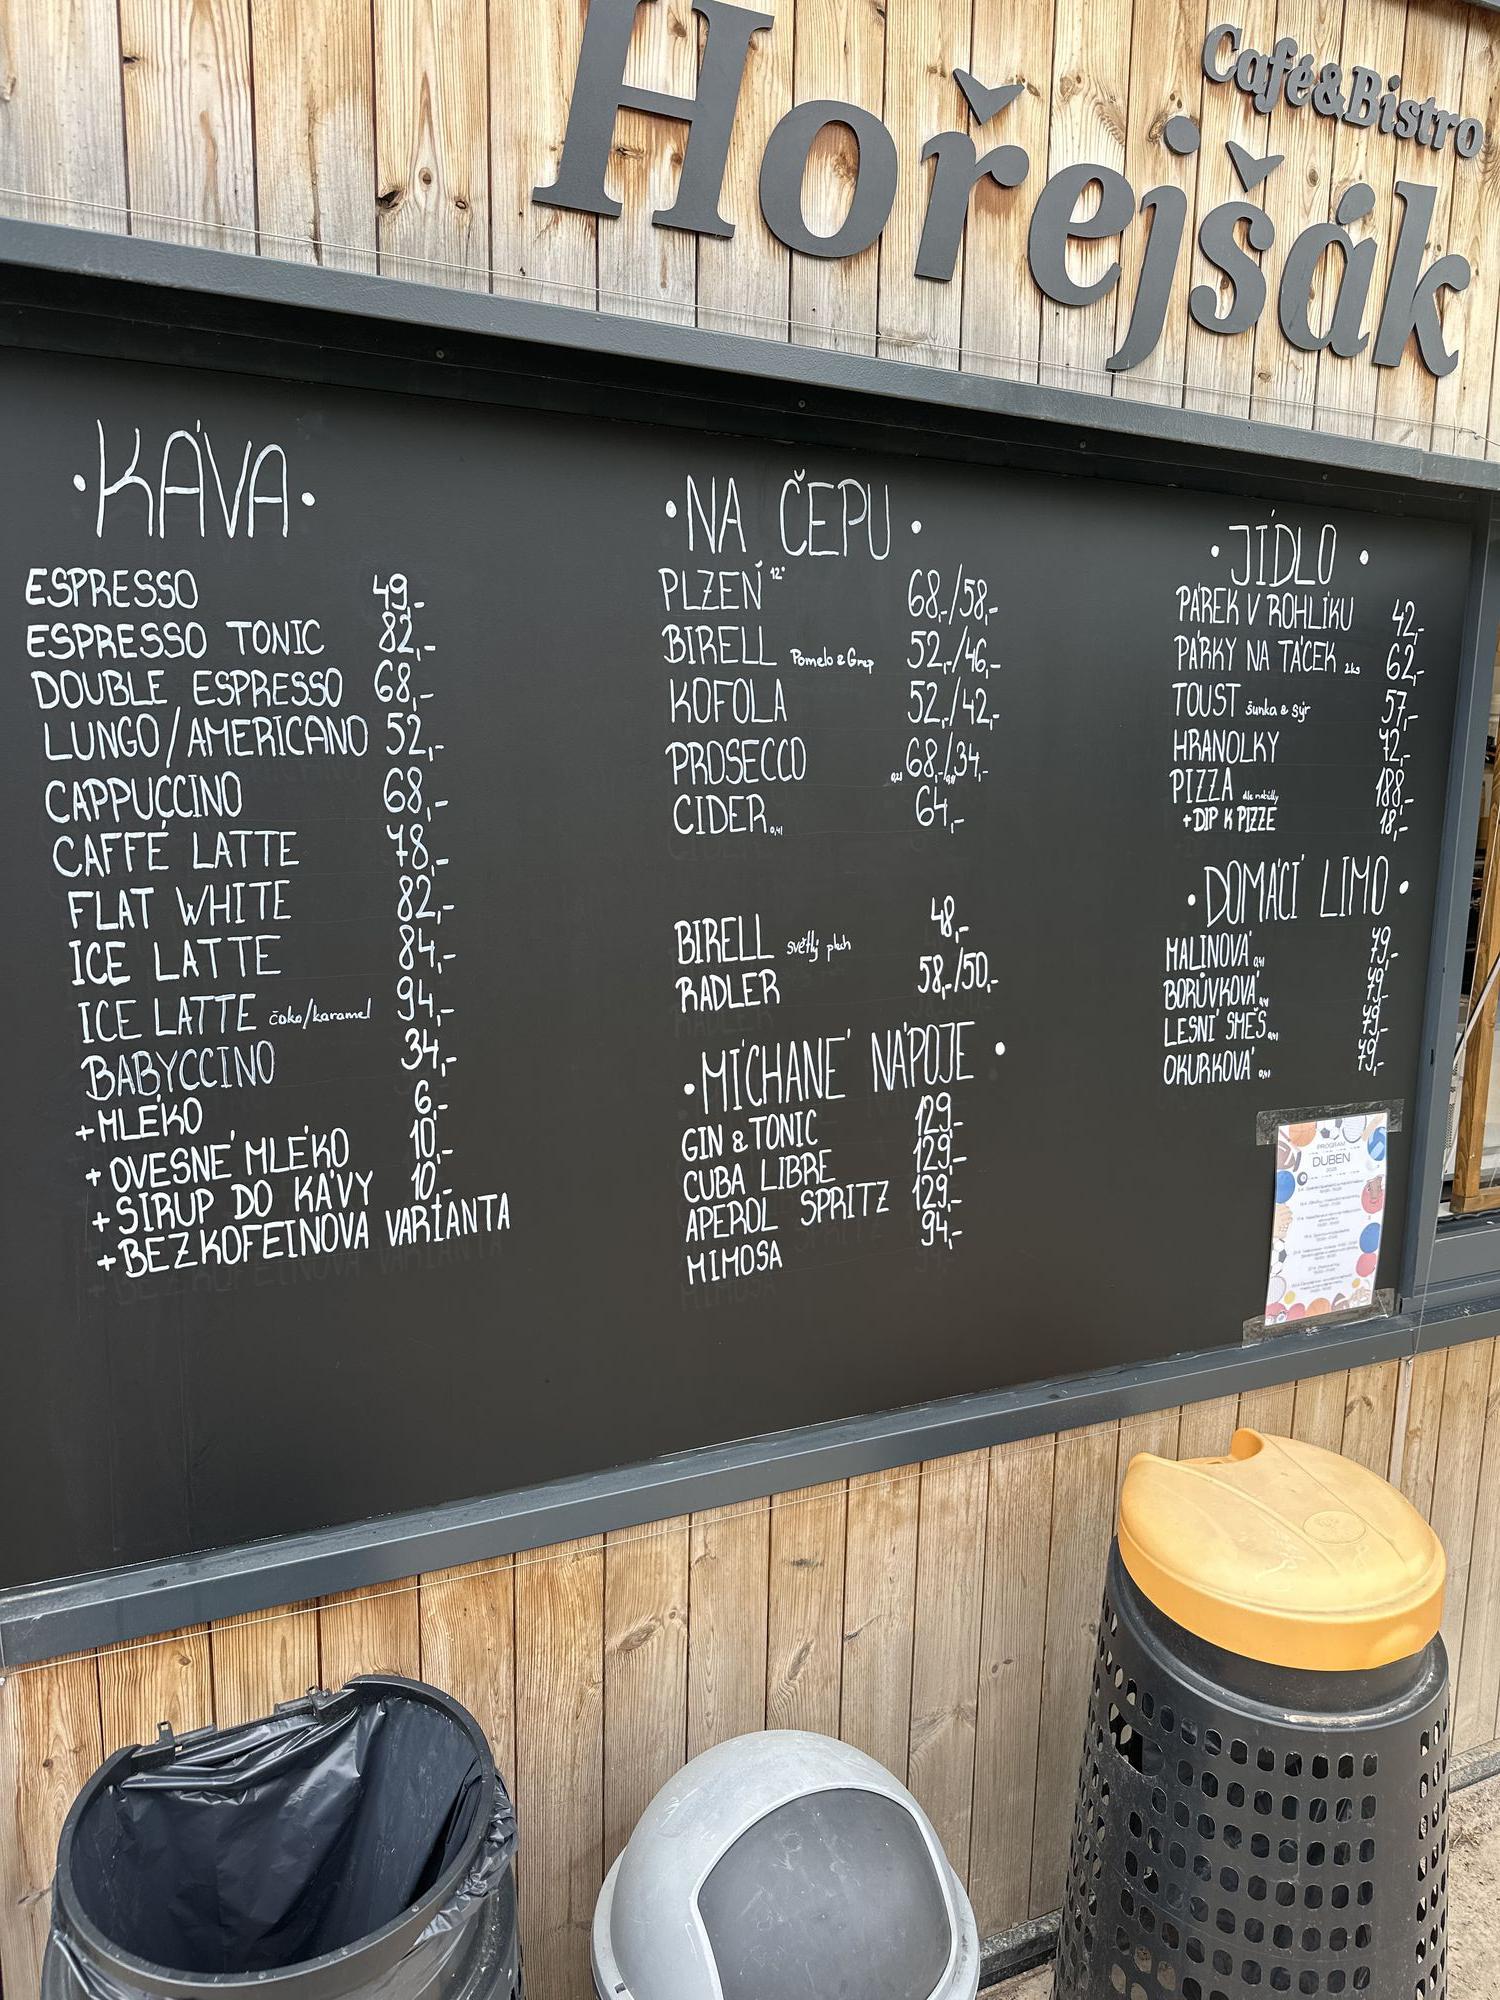 Café&Bistro
Hořejšák
• KÁVA •
ESPRESSO 49,-
ESPRESSO TONIC 82,-
DOUBLE ESPRESSO 68,-
LUNGO/AMERICANO 52,-
CAPPUCCINO 68,-
CAFFÉ LATTE 78,-
FLAT WHITE 82,-
ICE LATTE 84,-
ICE LATTE čoko/karamel 94,-
BABYCCINO 34,-
+MLÉKO 6,-
+OVESNÉ MLÉKO 10,-
+SIRUP DO KÁVY 10,-
+BEZKOFEINOVÁ VARIANTA
• NA ČEPU •
PLZEŇ 12° 68,-/58,-
BIRELL Pomelo & Grep 52,-/46,-
KOFOLA 52,-/42,-
PROSECCO 0,2l 68,-/0,1l 34,-
CIDER 0,4l 64,-
BIRELL světlý plech 48,-
RADLER 58,-/50,-
• MÍCHANÉ NÁPOJE •
GIN & TONIC 129,-
CUBA LIBRE 129,-
APEROL SPRITZ 129,-
MIMOSA 94,-
• JÍDLO •
PÁREK V ROHLÍKU 42,-
PÁRKY NA TÁCEK 2ks 62,-
TOUST šunka & sýr 57,-
HRANOLKY 72,-
PIZZA dle nabídky 188,-
+DIP K PIZZE 18,-
• DOMÁCÍ LIMO •
MALINOVÁ 0,4l 79,-
BORŮVKOVÁ 0,4l 79,-
LESNÍ SMĚS 0,4l 79,-
OKURKOVÁ 0,4l 79,-
PROGRAM
DUBEN